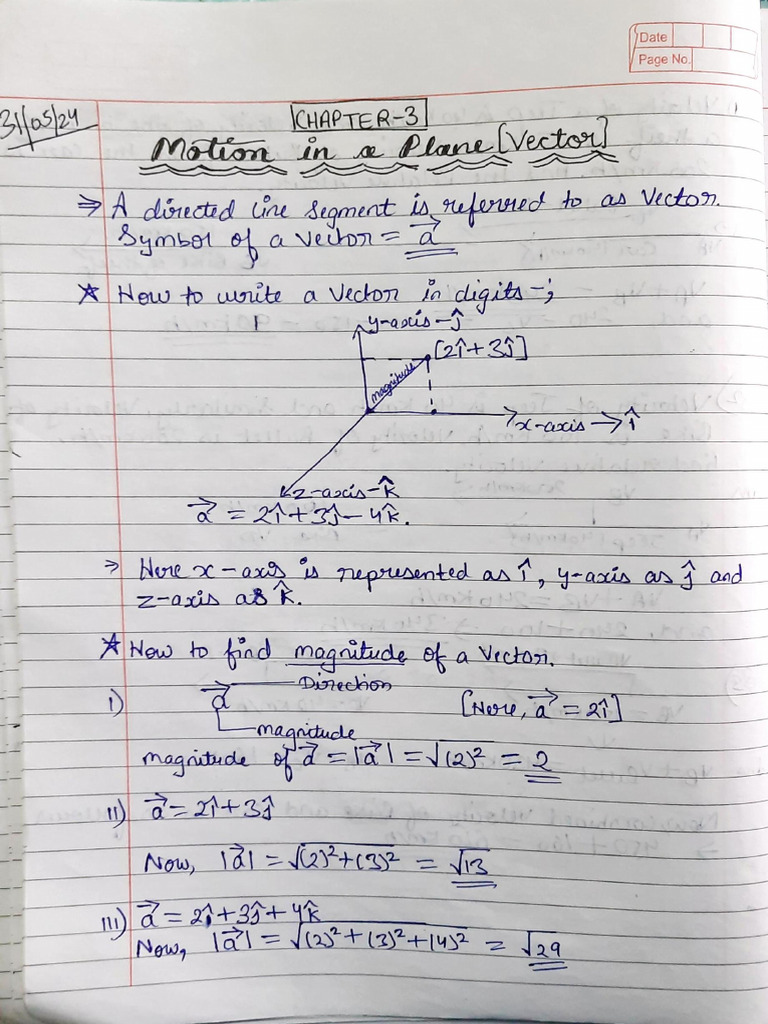 Date
Page No.
31/05/24
CHAPTER-3
Motion in a Plane [Vector]
⇒ A directed line segment is referred to as Vector.
Symbol of a Vector = a⃗
☆ How to write a Vector in digits-;
y-axis-ĵ
[2î+3ĵ]
magnitude
x-axis → î
z-axis-k̂
a⃗ = 2î+3ĵ-4k̂.
⇒ Here x-axis is represented as î, y-axis as ĵ and
z-axis as k̂.
☆ How to find magnitude of a Vector.
Direction
i) a⃗ [Here, a⃗ = 2î]
magnitude
magnitude of a⃗ = |a⃗| = √(2)² = 2
ii) a⃗ = 2î+3ĵ
Now, |a⃗| = √(2)²+(3)² = √13
iii) a⃗ = 2î+3ĵ+4k̂
Now, |a⃗| = √(2)²+(3)²+(4)² = √29